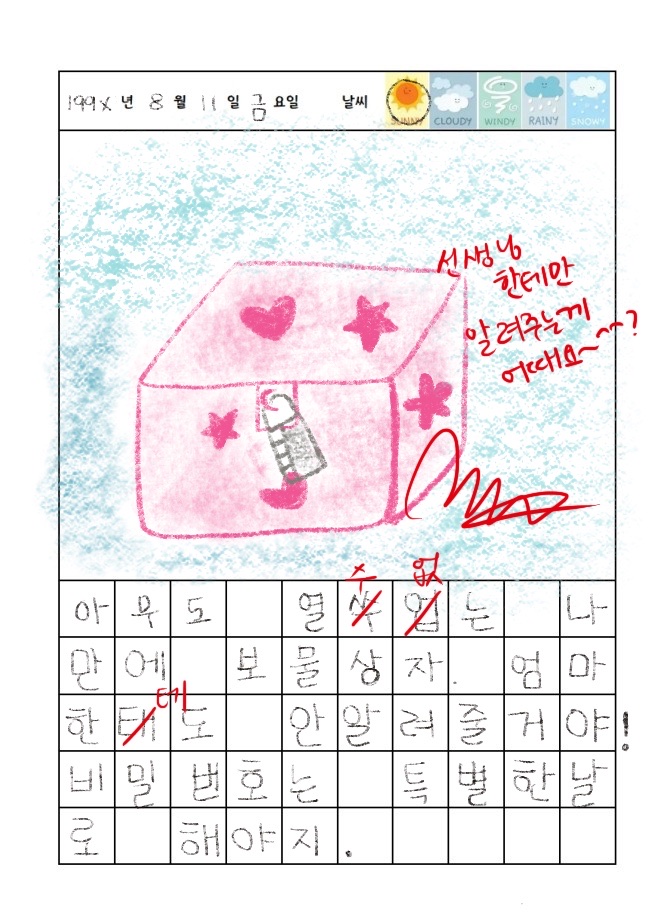 199X 년 8 월 11 일 금 요일 날씨 SUNNY CLOUDY WINDY RAINY SNOWY
선생님
한테만
알려주는게
어때요~^^?
수 없
아무도 열쑤업는 나
만에 보물상자. 엄마
테
한태도 안알려줄거야!
비밀번호는 특별한날
로 해야지.